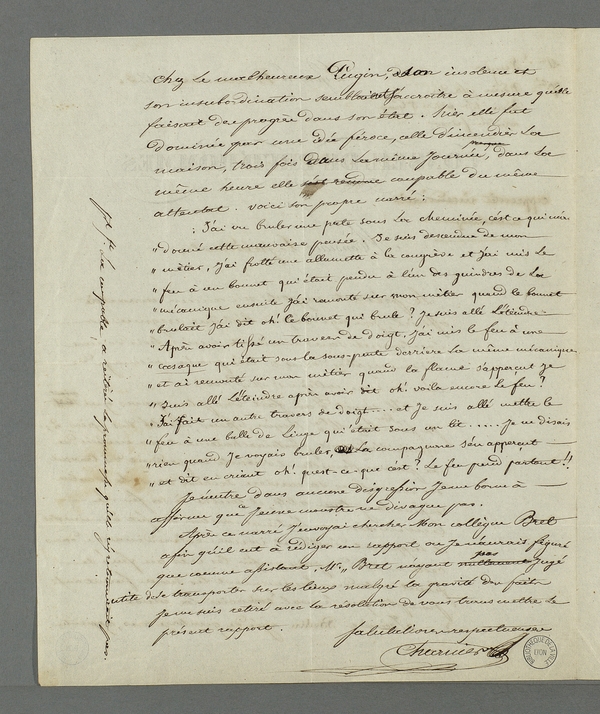 chez le malheureux Pugin, son insolence et
son insubordination semblaient s'accroitre à mesure qu'elle
faisait de progrès dans son état. hier elle fut
dominée par une idée féroce, celle d'incendier la
maison, trois fois dans la même journée, presque dans la
même heure elle s'est rendue coupable du même
attentat. voici son propre narré :
: J'ai vu bruler une pate sous la cheminée, c'est ce qui m'a
" donné cette mauvaise pensée. Je suis descendue de mon
" métier, j'ai frotté une allumette à la et j'ai mis le
" feu à un bonnet qui était pendu à l'un des guindres de la
" mécanique ensuite j'ai remonté sur mon métier quand le bonnet
" brulait j'ai dit oh! le bonnet qui brule? je suis allé l'éteindre
" Après avoir tissé un travers de doigt, j'ai mis le feu à une
" cosaque qui était sous la sous-pente derriere la même mécanique
" et ai remonté sur mon métier quand la flame s'apperçut je
" suis allé l'éteindre après avoir dit oh! voila encore le feu?
" J'ai fait un autre travers de doigt.... et je suis allé mettre le
" feu à une balle de linge qui était sous un lit..... je ne disais
" rien quand je voyais bruler, la compagnonne s'en apperçut
" et dit en criant oh! qu'est-ce que c'est? le feu prend partout!!
Je n'entre dans aucune disgression Je me borne à
affirmer que ce jeune monstre ne divague pas.
Après ce narré j'envoyai chercher Mon collègue Bret
afin qu'il eut à rédiger un rapport où je n'aurais figuré
que comme assistant, Mr Bret n'ayant nullement pas jugé
utile de se transporter sur les lieux malgré la gravité du fait
je me suis retiré avec la résolution de vous transmettre le
présent rapport.
Salutations respectueuses
Charnier
La coupable, a réitéré la promesse qu'elle
BIBLIOTHEQUE DE LA VILLE LYON